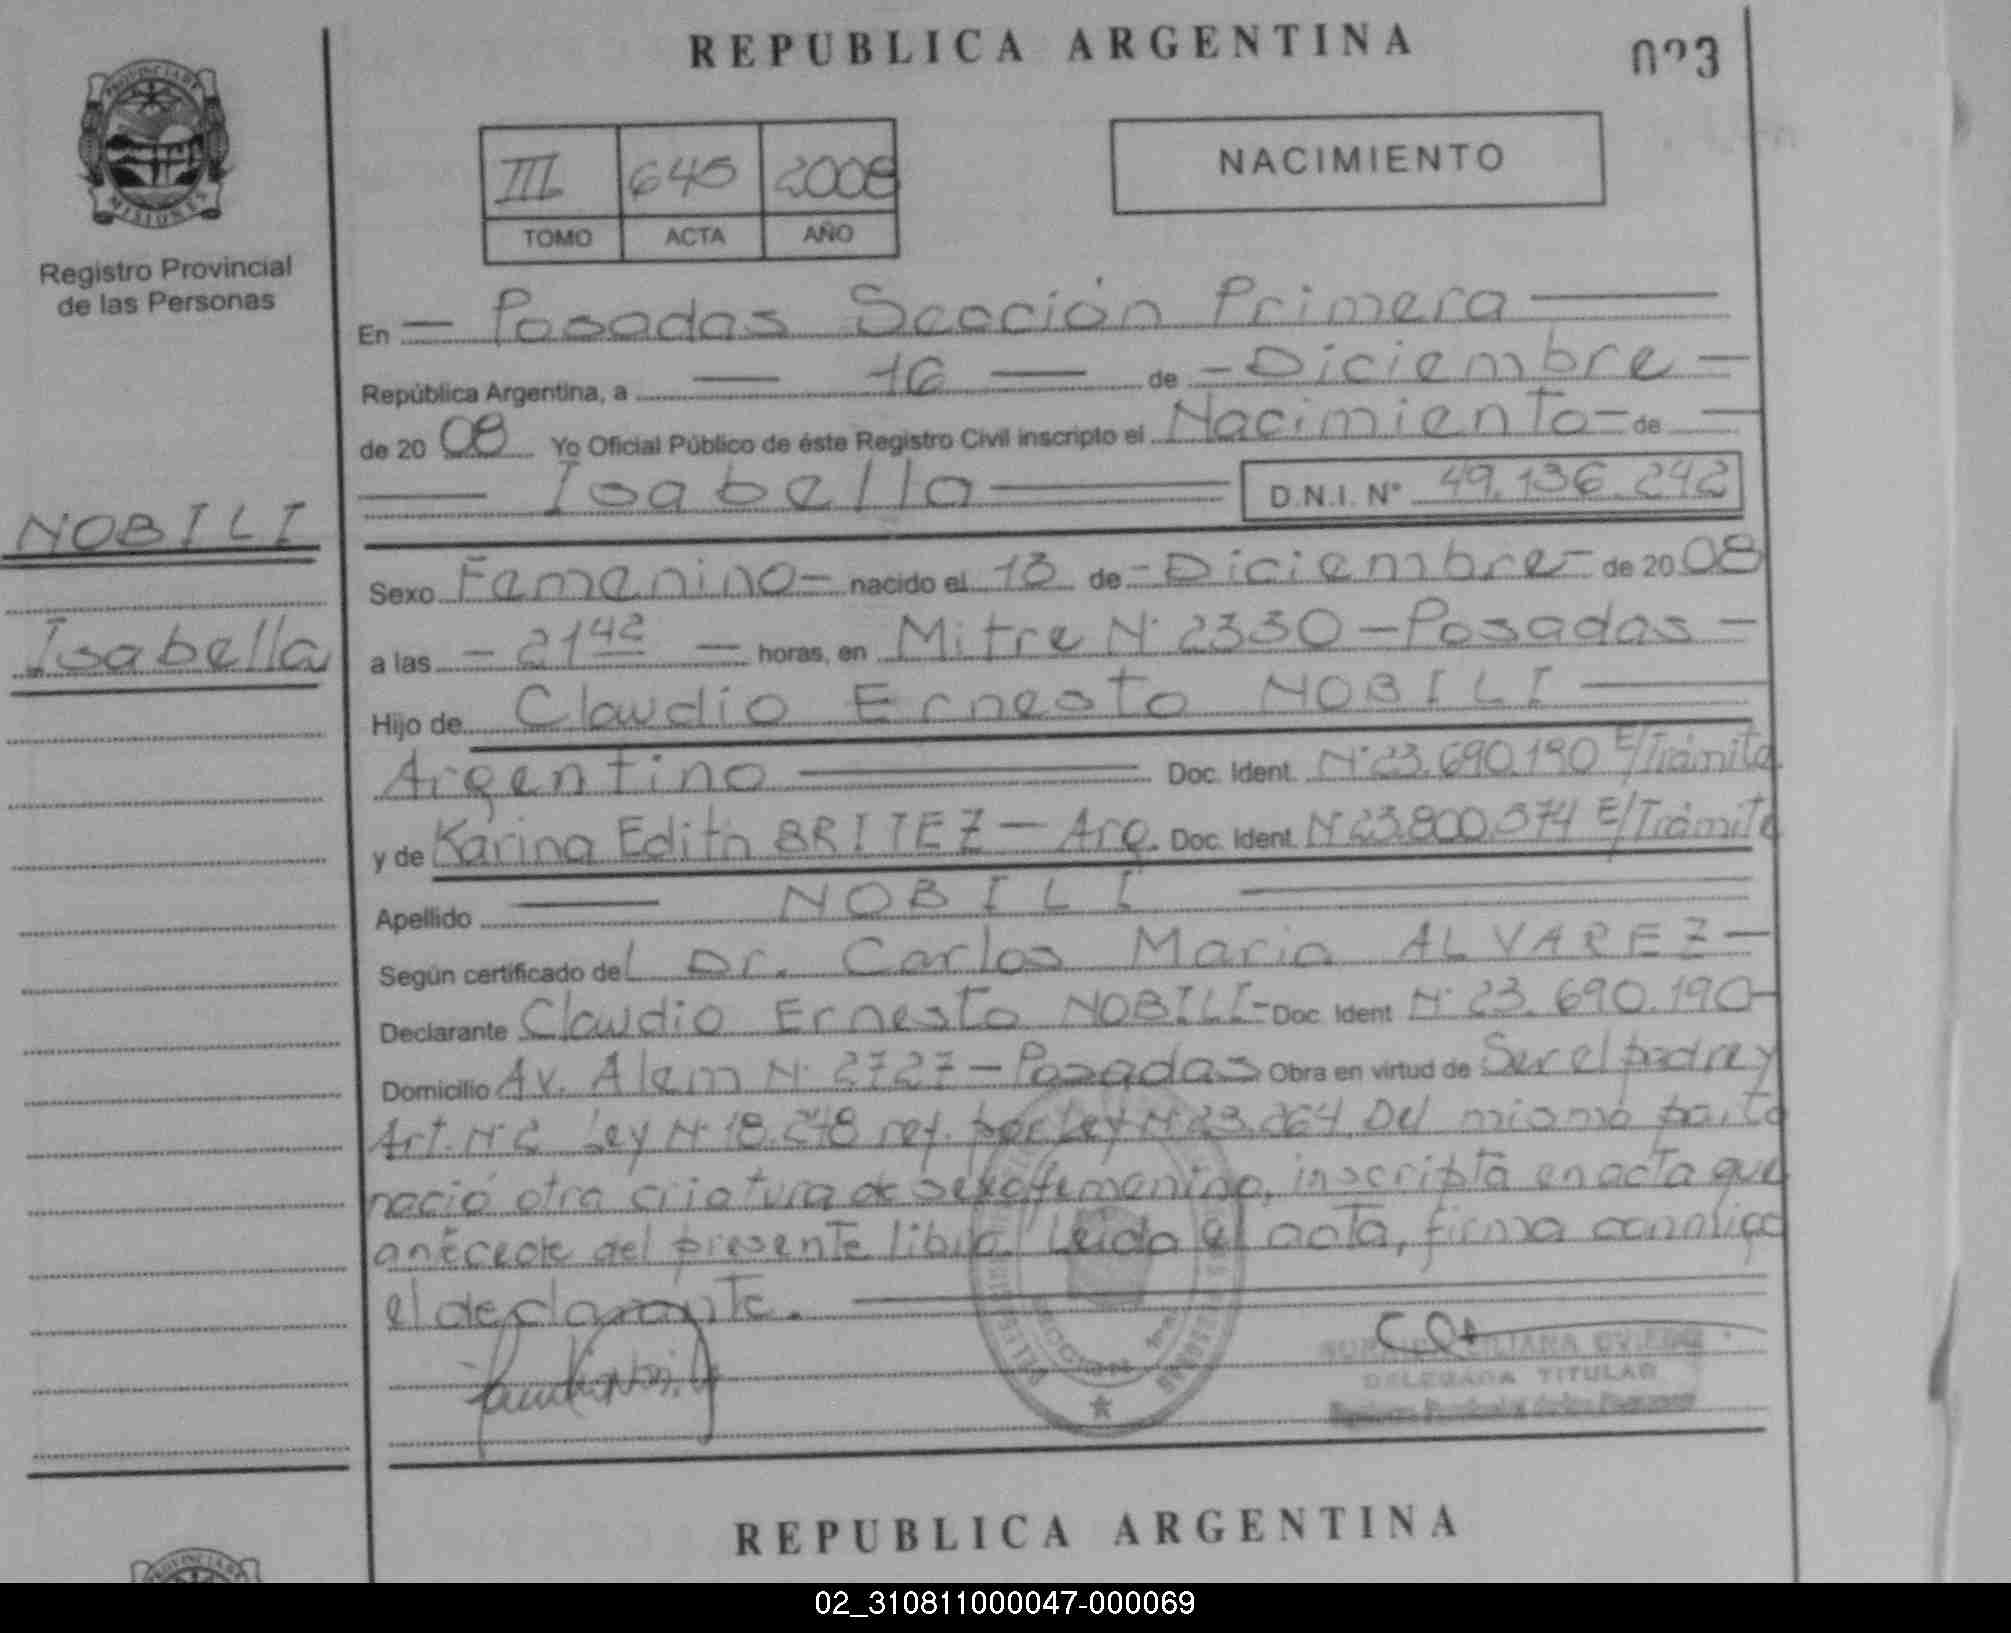 REPUBLICA ARGENTINA
023
PROVINCIA DE
MISIONES
Registro Provincial
de las Personas
III 645 2008
TOMO ACTA AÑO
NACIMIENTO
En — Posadas Sección Primera —
República Argentina, a — 16 — de - Diciembre -
de 2008 Yo Oficial Público de éste Registro Civil inscripto el Nacimiento - de —
— Isabella — D.N.I. Nº 49.136.242
NOBILI
Isabella
Sexo Femenino - nacido el 13 de - Diciembre - de 2008
a las - 21 42 - horas, en Mitre Nº 2330 - Posadas -
Hijo de Claudio Ernesto NOBILI —
Argentino — Doc. Ident. Nº 23.690.190 E/Trámite
y de Karina Edith BRITEZ - Arg. Doc. Ident. Nº 23.800.374 E/Trámite
Apellido — NOBILI —
Según certificado del Dr. Carlos Maria ALVAREZ -
Declarante Claudio Ernesto NOBILI - Doc. Ident Nº 23.690.190 -
Domicilio Av. Alem Nº 2727 - Posadas Obra en virtud de Ser el padre y
Art. Nº 2 Ley Nº 18.248 ref. por Ley Nº 23.264 Del mismo parto
nació otra criatura de sexo femenino, inscripta en acta que
antecede del presente libro. Leida el acta, firma conmigo
el declarante. —
DELEGADA TITULAR
REPUBLICA ARGENTINA
02_310811000047-000069